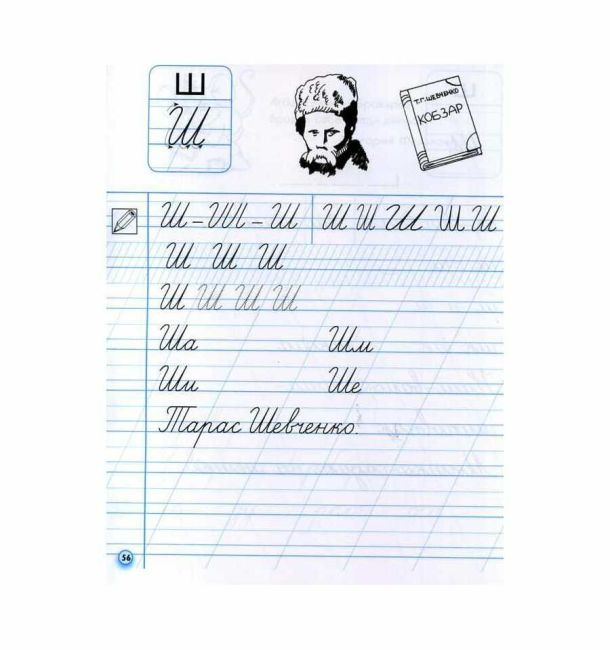 Ш
Ш
Т.Г. ШЕВЧЕНКО
КОБЗАР
Ш – Ш – Ш Ш Ш Ш Ш Ш
Ш Ш Ш
Ш Ш Ш Ш
Ша Шм
Ши Ше
Тарас Шевченко.
56